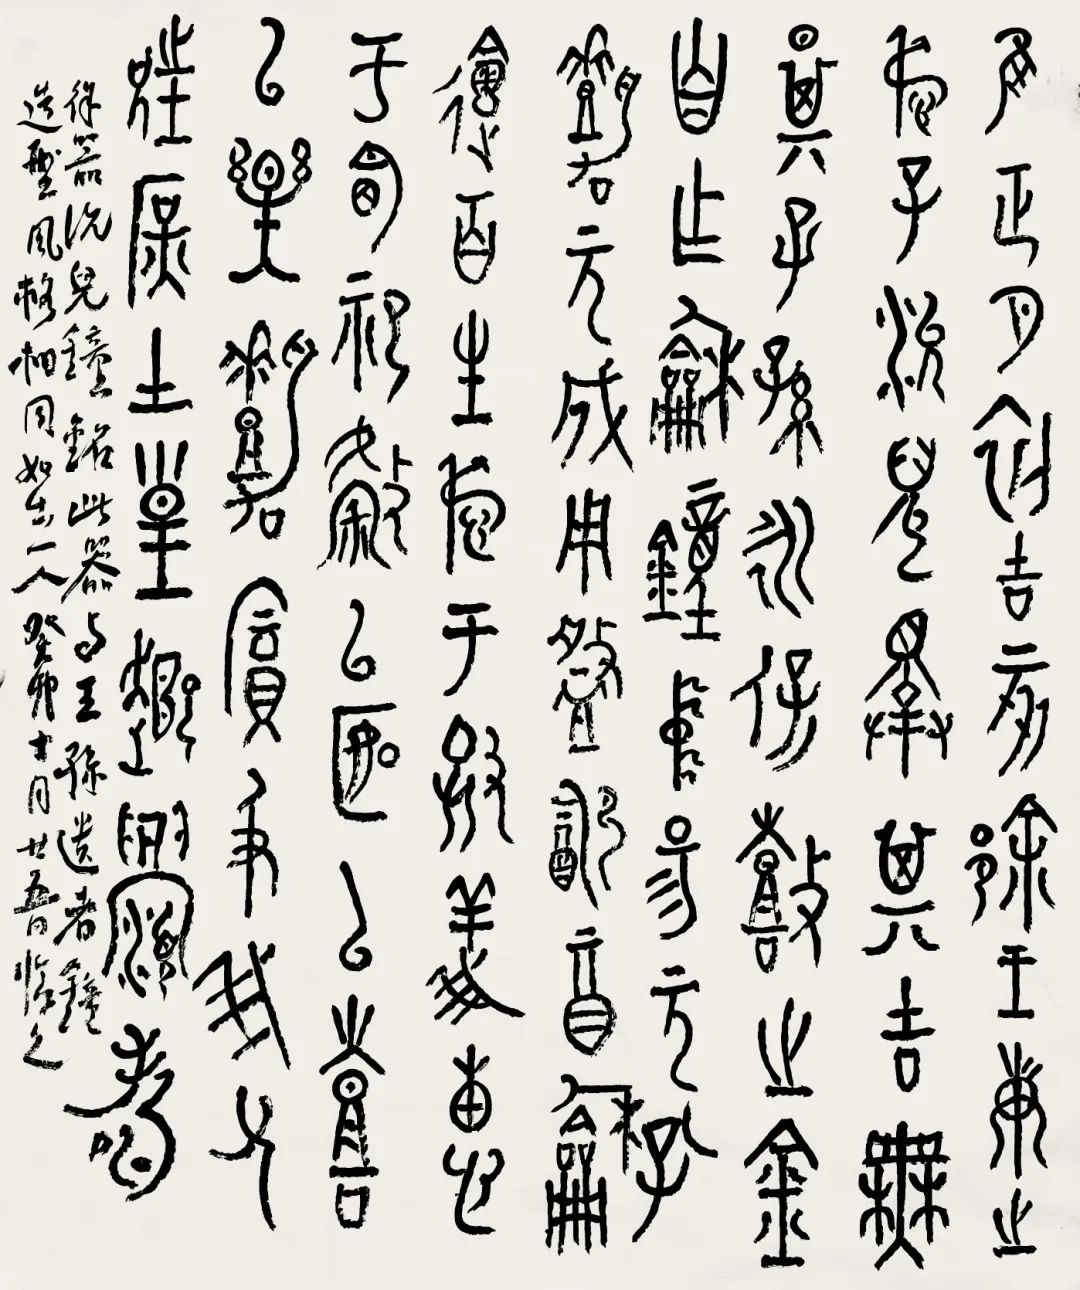 隹正月初吉亥徐王庚之
淑子沇兒擇其吉無
期子孫永保鼓之金
自作龢鐘中元孔
嘉元成用盤飲酒龢
會百生淑于畏義惠
于祀吾以匽以喜
以樂嘉賓及我父
兄庶士皇趩眉壽
徐器沇兒鐘銘此器與王孫遺者鐘
造型風格相同如出一人癸卯十月廿五日臨之